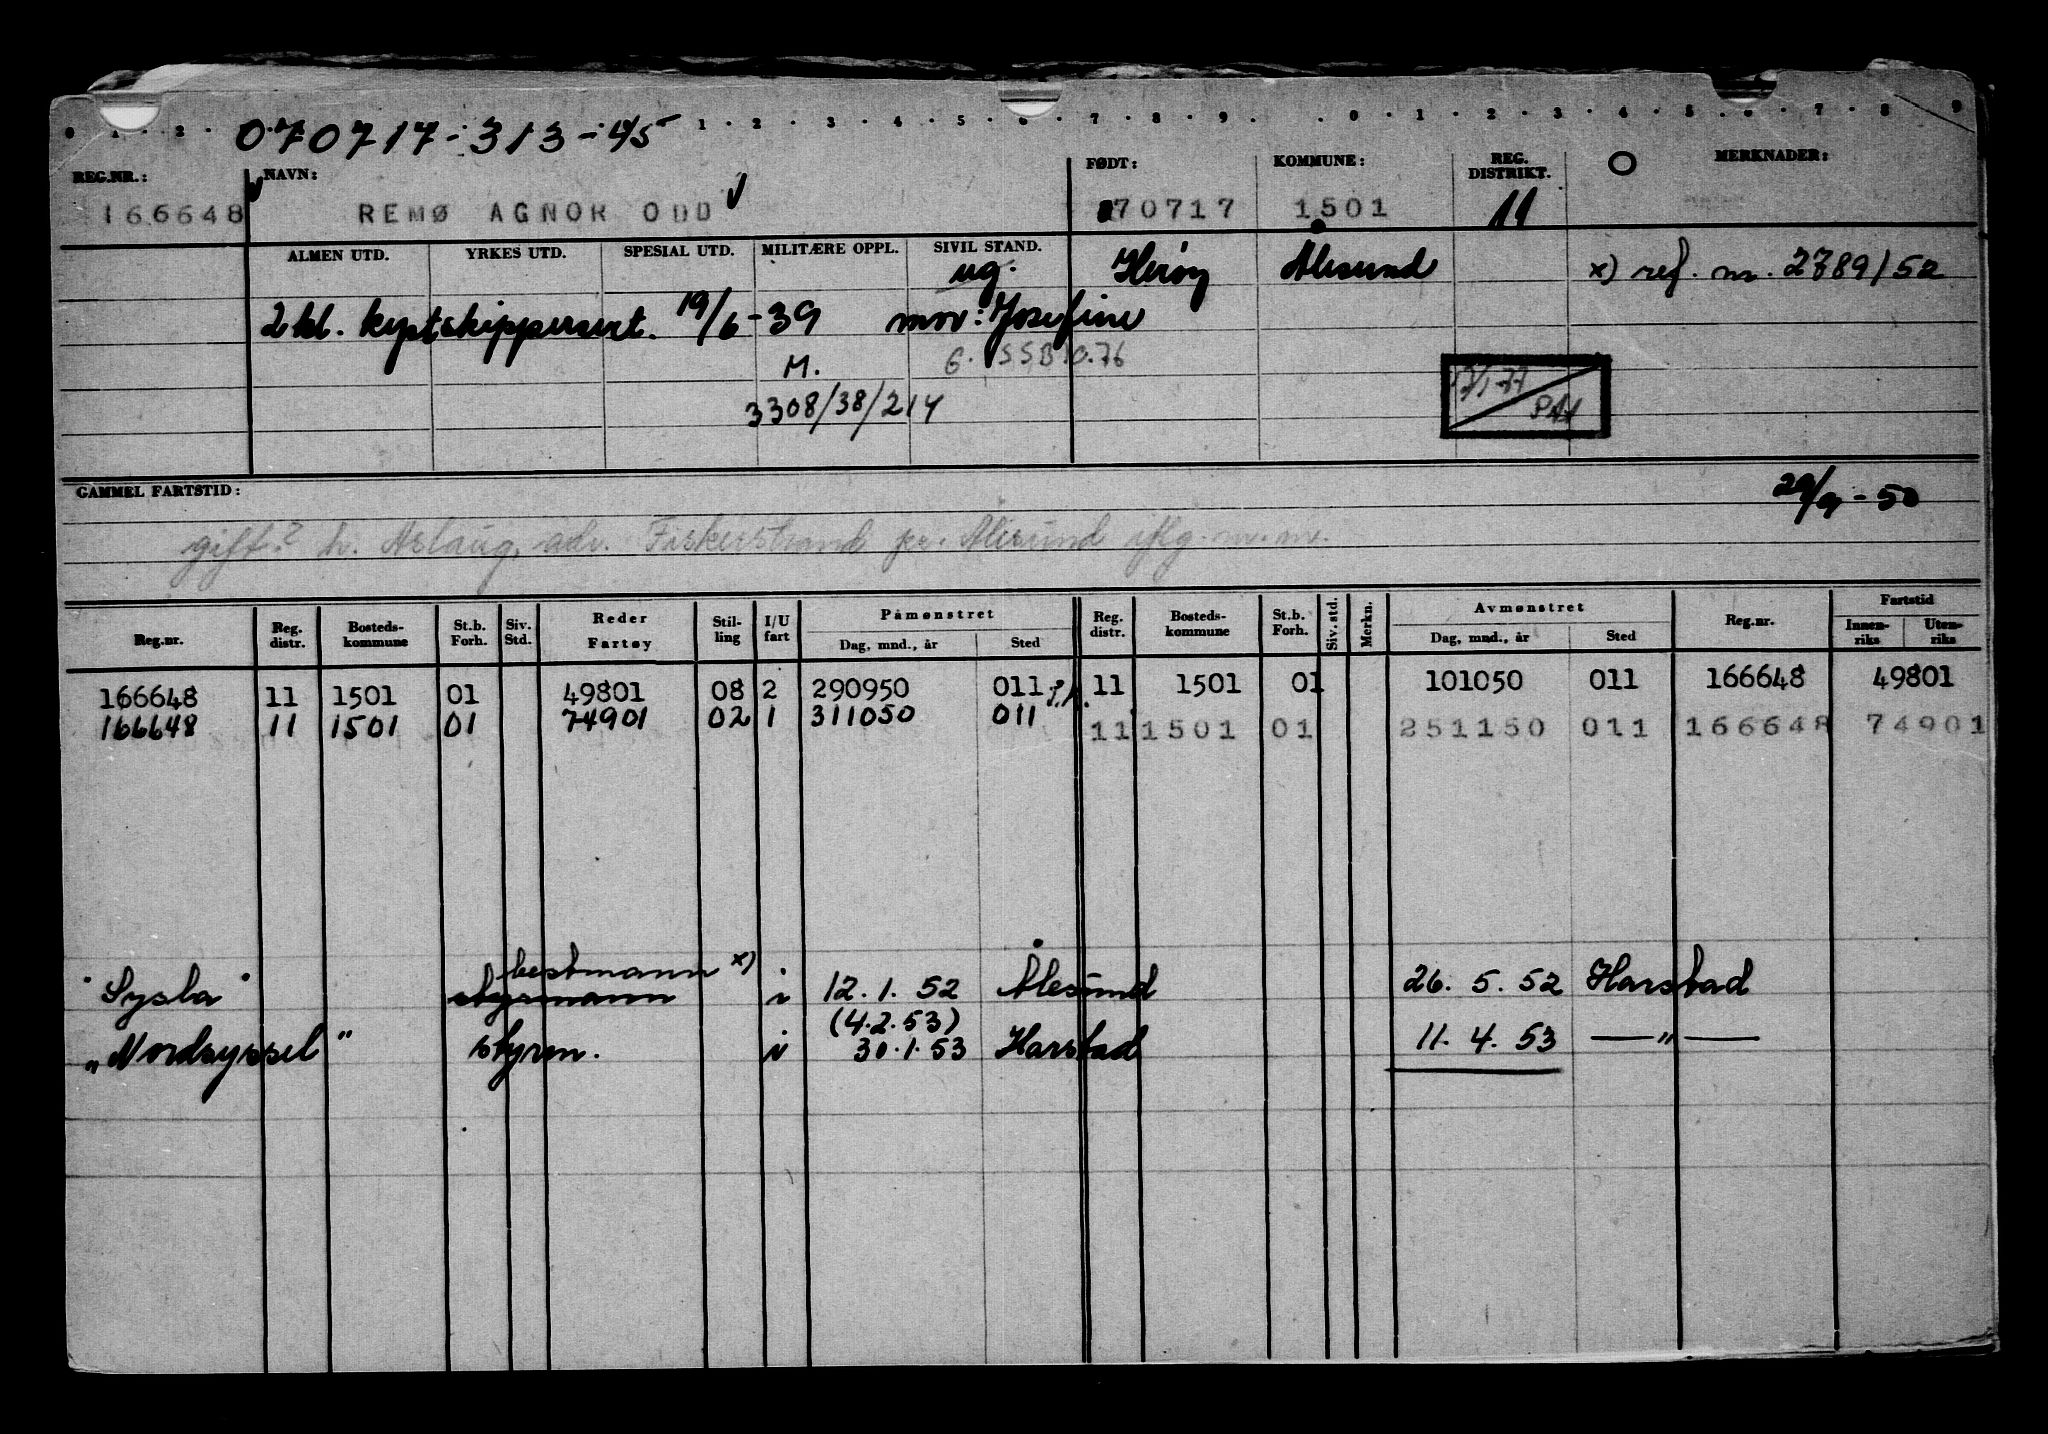 070717-313-45
REG.NR.: NAVN: FØDT: KOMMUNE: REG. DISTRIKT. MERKNADER:
166648 REMØ AGNOR ODD 070717 1501 11
ALMEN UTD. YRKES UTD. SPESIAL UTD. MILITÆRE OPPL. SIVIL STAND.
ug. Herøy Ålesund x) ref. nr. 2789/52
2 kl. kystskippersert. 19/6-39 mor: Josefine
M. G. SSB 10.76
3308/38/214
GAMMEL FARTSTID: 29/9-50
gift? h. Aslaug, adr. Fiskerstrand pr. Ålesund
Reg.nr. Reg. distr. Bosteds-kommune St.b. Forh. Siv. Std. Reder Fartøy Stil-ling I/U fart Påmønstret Dag, mnd., år Sted Reg. distr. Bosteds-kommune St.b. Forh. Siv. std. Merkn. Avmønstret Dag, mnd., år Sted Reg.nr. Fartstid Innen-riks Uten-riks
166648 11 1501 01 49801 08 2 290950 011 11 1501 01 101050 011 166648 49801
166648 11 1501 01 74901 02 1 311050 011 11 1501 01 251150 011 166648 74901
bestmann x)
"Sysla" styrmann i 12.1.52 Ålesund 26.5.52 Harstad
(4.2.53)
"Nordsyssel" styrm. i 30.1.53 Harstad 11.4.53 —"—